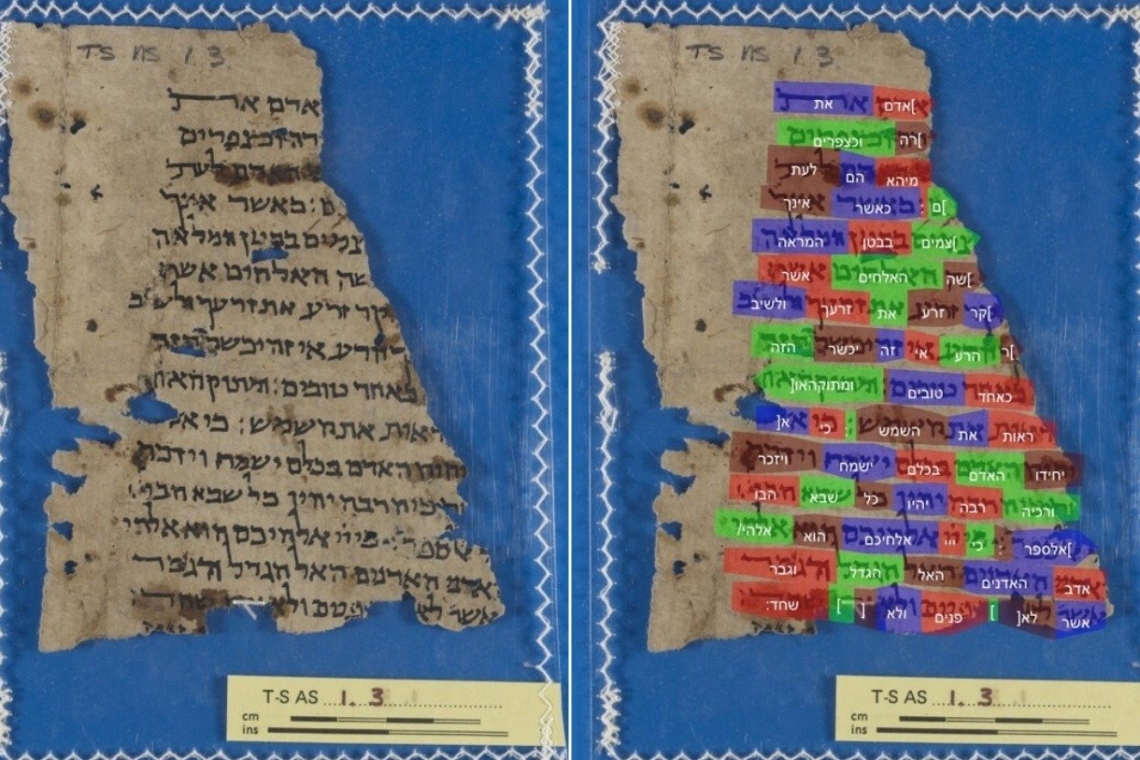 TS NS 1.3
אדם את
רה וכצפרים
האדם לעת
ם : כאשר אינך
צמים בבטן המלאה
שה האלהים אשר
קר זרע את זרעך
הרע אי זה יכשר הזה
כאחד טובים : ומתוק הא
ראות את השמש : כי א
האדם בכלם ישמח ויזכר
הרבה יהיו כל שבא הב
כי יי אלהיכם הוא אלהי
אדני האדנים האל הגדל הגבר
אשר לא פנים ולא שחד :
T-S AS 1.3
cm
ins
TS NS 1.3
[אדם את
[רה וכצפרים
מיהא הם לעת
[ם : כאשר אינך
[צמים בבטן המראה
[שה האלחים אשר
[קר זרע את זרעך ולשיב
[ר הרע אי זה יכשר הזה
כאחד טובים ומתוקהאו]
ראות את השמש : כי א]
יחידו האדם בכלם ישמח ויזכר
ורכיה רבה יהיו כל שבא הבו
[אלספר : כי ייי אלחיכם הוא אלהי/
אדב האדנים האל הגדל וגבר
אשר לא] [ פנים ולא ] [ שחד:
T-S AS 1.3
cm
ins